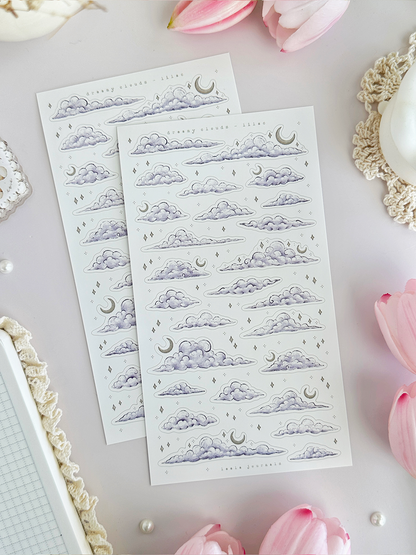 dreamy clouds - lilac
dreamy clouds - lilac